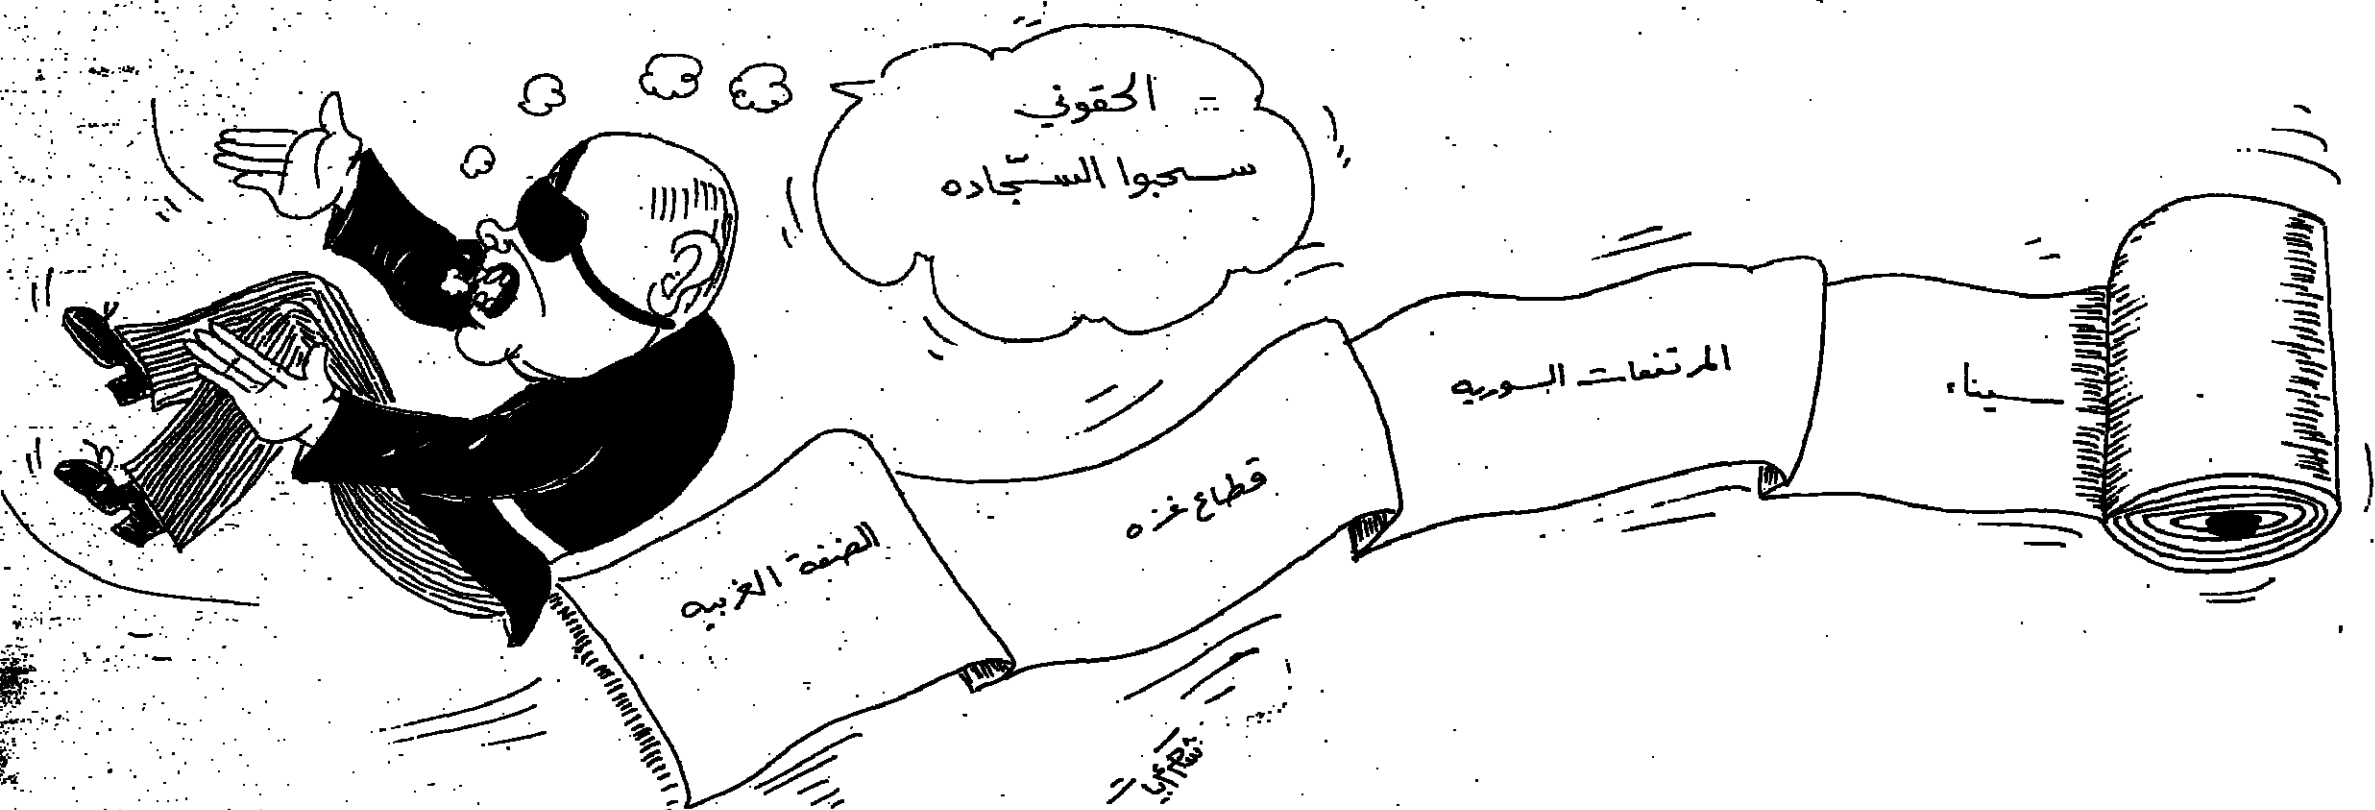 الحقوني
سحبوا السجّاده
سيناء
المرتفعات السوريه
قطاع غزه
الضفة الغربيه